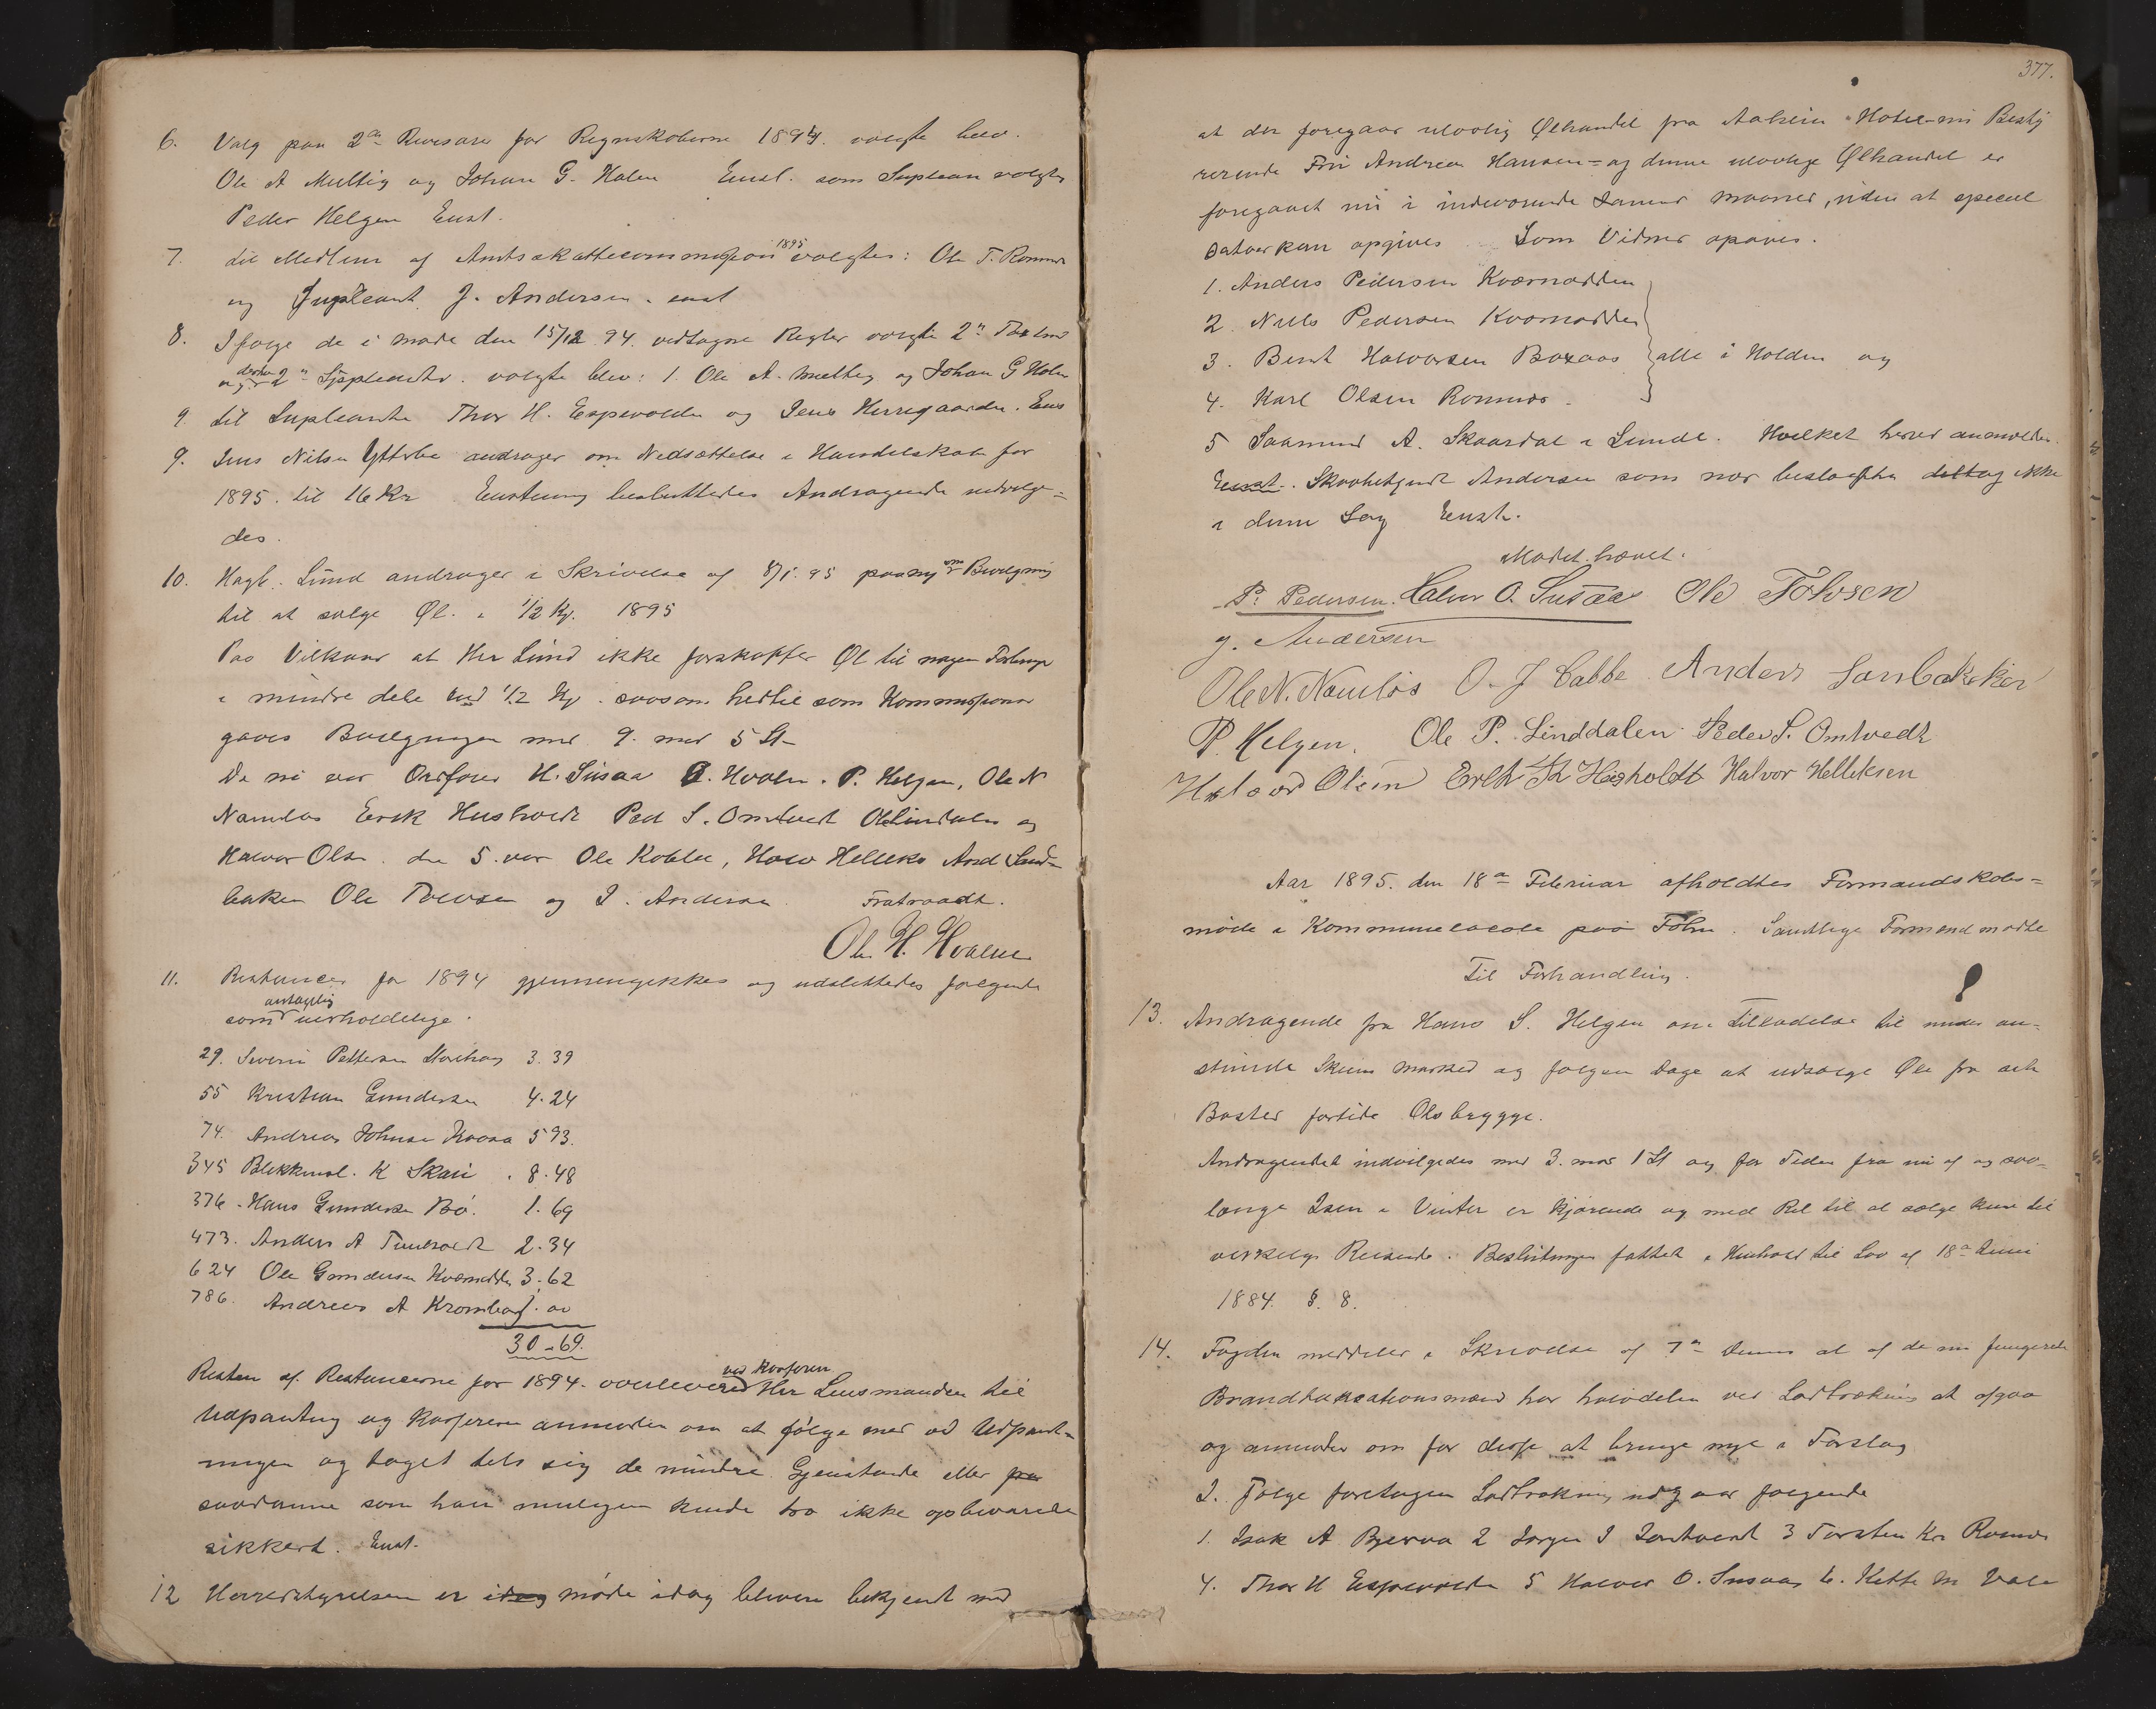 6. Valg paa 2de Revisorer for Regnskaberne 1894. valgte blev.
Ole A Multig og Johan G. Holm Enst. som Supleant valgtes
Peder Helgen Enst.
7. til Medlem af Amtsskattecommission 1895 valgtes: Ole T. Romnes
og Supleant J. Andersen. enst
8. Ifølge de i møde den 15/12 94. vedtagne Regler valgtes 2de
og desuden 2de Suppleanter. valgte blev: 1. Ole A. Multig og Johan G Holm
9. til Supleanter Thor H. Espevolden og Jens Herregaarden. Ens
9. Jens Nilsen Ytterbø andrager om Nedsættelse i Handelskat for
1895. til 16 Kr Enstemmig besluttedes Andragende indvilge=
des.
10. Hagb. Lund andrager i Skrivelse af 8/1. 95 paany om Bevilgning
til at sælge Øl. i 1/2 Kg. 1895
Paa Vilkaar at Her Lund ikke forskaffer Øl til nogen
i mindre dele end 1/2 Kg. saasom hertil som Kommissionær
gaves Bevilgningen med 9. mod 5 St.
De ni var Ordfører H. Susaa O. Hvalen. P. Helgen, Ole N
Namløs Erik Husholdt Ped S. Omtvedt Ole Lindalen og
Halvor Olsen. de 5. var Ole Kabbe, Halv Helleks And Sand=
bakken Ole Tolvsen og J. Andersen. Fratraadt.
Ole H. Hvalen
11. Restancer for 1894 gjennemgikkes og udslettedes følgende
som antagelig uerholdelige.
29. Severin Pettersen 3.39
55 Kristian Gundersen 4.24
74. Andreas Johnsen Kaasa 5 93.
345 Blikkensl. K Skau. 8.48
376. Hans Gundersen Bø. 1.69
473. Anders A Tuntvedt 2.34
624 Ole Gundersen Kværnodden 3.62
786. Andreas A Kromberg 1. 00
30.69.
Resten af Restancerne for 1894. overleveres ved Kasseren Her Lensmanden til
Udpantning og Kassereren anmodes om at følge med ved Udpant=
ningen og taget dels sig de mindre Gjenstande eller paa
saadanne som han muligen kunde tro ikke opbevarede
sikkert. Enst.
12 Herredstyrelsen er idag møde idag bleven bekjendt med
377.
at der foregaar ulovlig Ølhandel fra Aaheim Hotel nu Besty
rerende Fru Andrea Hansen= og denne ulovlige Ølhandel er
foregaaet nu i indeværende Januar maaned, uden at speciel
Datoer kan opgives Som Vidner opgives.
1. Anders Pedersen Kværnodden
2. Nils Pedersen Kværnodden
3. Bent Halvorsen Baxaas alle i Holden og
4. Karl Olsen Romnes.
5 Saamund A. Skaardal i Lunde. Hvilket herved anmeldes.
Enst. Skovbetjent Andersen som nær beslægtet deltog ikke
i denne Sag Enst.
Mødet hævet.
P. Pedersen. Halvor O. Susaas Ole Tolvsen
J. Andersen
Ole N. Namløs O. J Cabbe Anders Sanbakken
P. Helgen. Ole P. Linddalen Peder S. Omtvedt
Halvor Olsen Erik Th Husholdt Halvor Helleksen
Aar 1895. den 18de Februar afholdtes Formandskabs=
møde i Kommunelocale paa Folm. Samtlige Formænd mødte
Til Forhandling.
13. Andragende fra Hans S. Helgen om tilladelse til under an=
stunde Skiens marked og følgen Dage at udsælge Øl fra sit
Bosted fortide Olsbrygge.
Andragendet indvilgedes med 3. mod 1 St og for Tiden fra nu af og saa=
længe Isen i Vinter er kjørende og med Ret til at sælge kun til
virkelige Reisende. Beslutningen fattet i Henhold til Lov af 18de Juni
1884. §. 8.
14. Fogden meddeler i Skrivelse af 7de Dennes at af de nu fungerende
Brandtaxationsmænd har halvdelen ved Lodtrækning at afgaa
og anmoder om for disse at bringe nye i Forslag
I. Følge foretagen Lodtrækning udgaar følgende
1. Isak A Bjerva 2 Jørgen J Jontvedt 3 Torsten Kr. Romnes
4. Thor H Espevolden 5 Halvor O. Susaas 6. Kittil M Vale